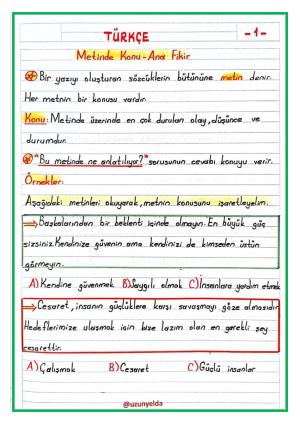 TÜRKÇE
- 1 -
Metinde Konu - Ana Fikir
Bir yazıyı oluşturan sözcüklerin bütününe metin denir.
Her metnin bir konusu vardır.
Konu: Metinde üzerinde en çok durulan olay, düşünce ve
durumdur.
"Bu metinde ne anlatılıyor?" sorusunun cevabı konuyu verir.
Örnekler:
Aşağıdaki metinleri okuyarak, metnin konusunu işaretleyelim.
Başkalarından bir beklenti içinde olmayın. En büyük güç
sizsiniz. Kendinize güvenin ama kendinizi de kimseden üstün
görmeyin.
A) Kendine güvenmek B) Saygılı olmak C) İnsanlara yardım etmek
Cesaret, insanın güçlüklere karşı savaşmayı göze almasıdır.
Hedeflerimize ulaşmak için bize lazım olan en gerekli şey
cesarettir.
A) Çalışmak B) Cesaret C) Güçlü insanlar
@uzunyelda